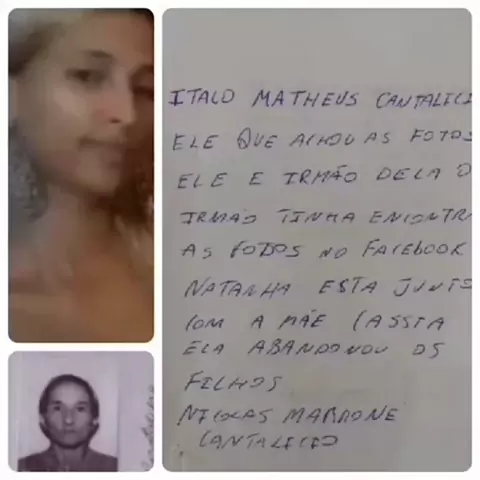 ITALO MATHEUS CANTALICI
ELE QUE ACHOU AS FOTOS
ELE E IRMÃO DELA O
IRMÃO TINHA ENCONTR
AS FOTOS NO FACEBOOK
NATANHA ESTA JUNTO
COM A MÃE CASSIA
ELA ABANDONOU OS
FILHOS
NICOLAS MARRONE
CANTALICIO